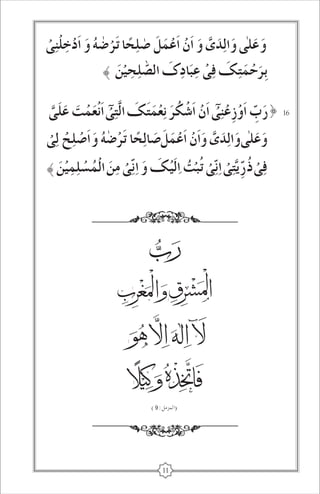 وَعَلٰى وَالِدَيَّ وَ اَنْ اَعْمَلَ صَالِحًا تَرْضٰىهُ وَ اَدْخِلْنِيْ
بِرَحْمَتِكَ فِيْ عِبَادِكَ الصّٰلِحِيْنَ ﴾
16 ﴿ رَبِّ اَوْزِعْنِيْٓ اَنْ اَشْكُرَ نِعْمَتَكَ الَّتِيْٓ اَنْعَمْتَ عَلَيَّ
وَعَلٰى وَالِدَيَّ وَاَنْ اَعْمَلَ صَالِحًا تَرْضٰىهُ وَ اَصْلِحْ لِيْ
فِيْ ذُرِّيَّتِيْ اِنِّيْ تُبْتُ اِلَيْكَ وَ اِنِّيْ مِنَ الْمُسْلِمِيْنَ ﴾
رَبُّ
الْمَشْرِقِ وَالْمَغْرِبِ
لَآ اِلٰهَ اِلَّا هُوَ
فَاتَّخِذْهُ وَكِيْلًا
(المزمل: 9)
11